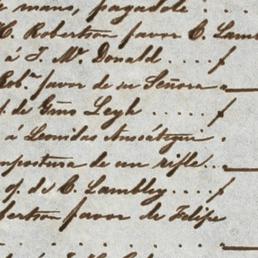 mano, pagadole ....
C. Robertson favor C. Lamb
á J. Mc. Donald .... f
Cobn. favor de su Señora a
of. de Gmo Leigh .... f
á Leonidas Ansoátegui . f
mpostura de un rifle...
of. de C. Lambley .... f
bertson favor de Felipe